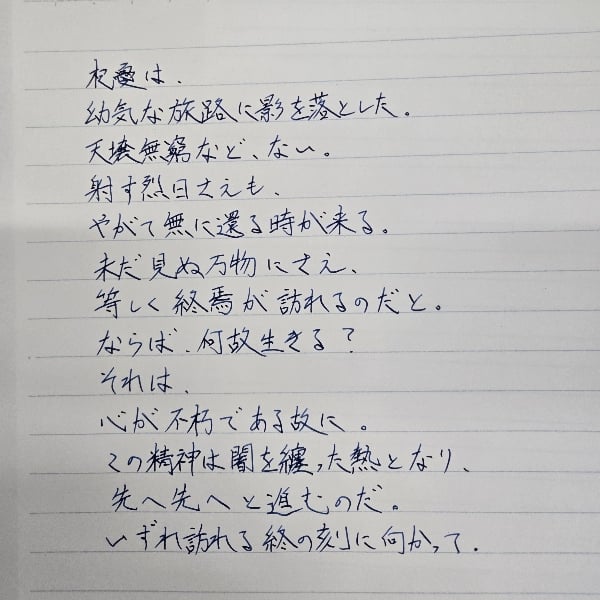 杞憂は、
幼気な旅路に影を落とした。
天壌無窮など、ない。
射す烈日さえも、
やがて無に還る時が来る。
未だ見ぬ万物にさえ、
等しく終焉が訪れるのだと。
ならば、何故生きる？
それは、
心が不朽である故に。
この精神は闇を纏った熱となり、
先へ先へと進むのだ。
いずれ訪れる終の刻に向かって。